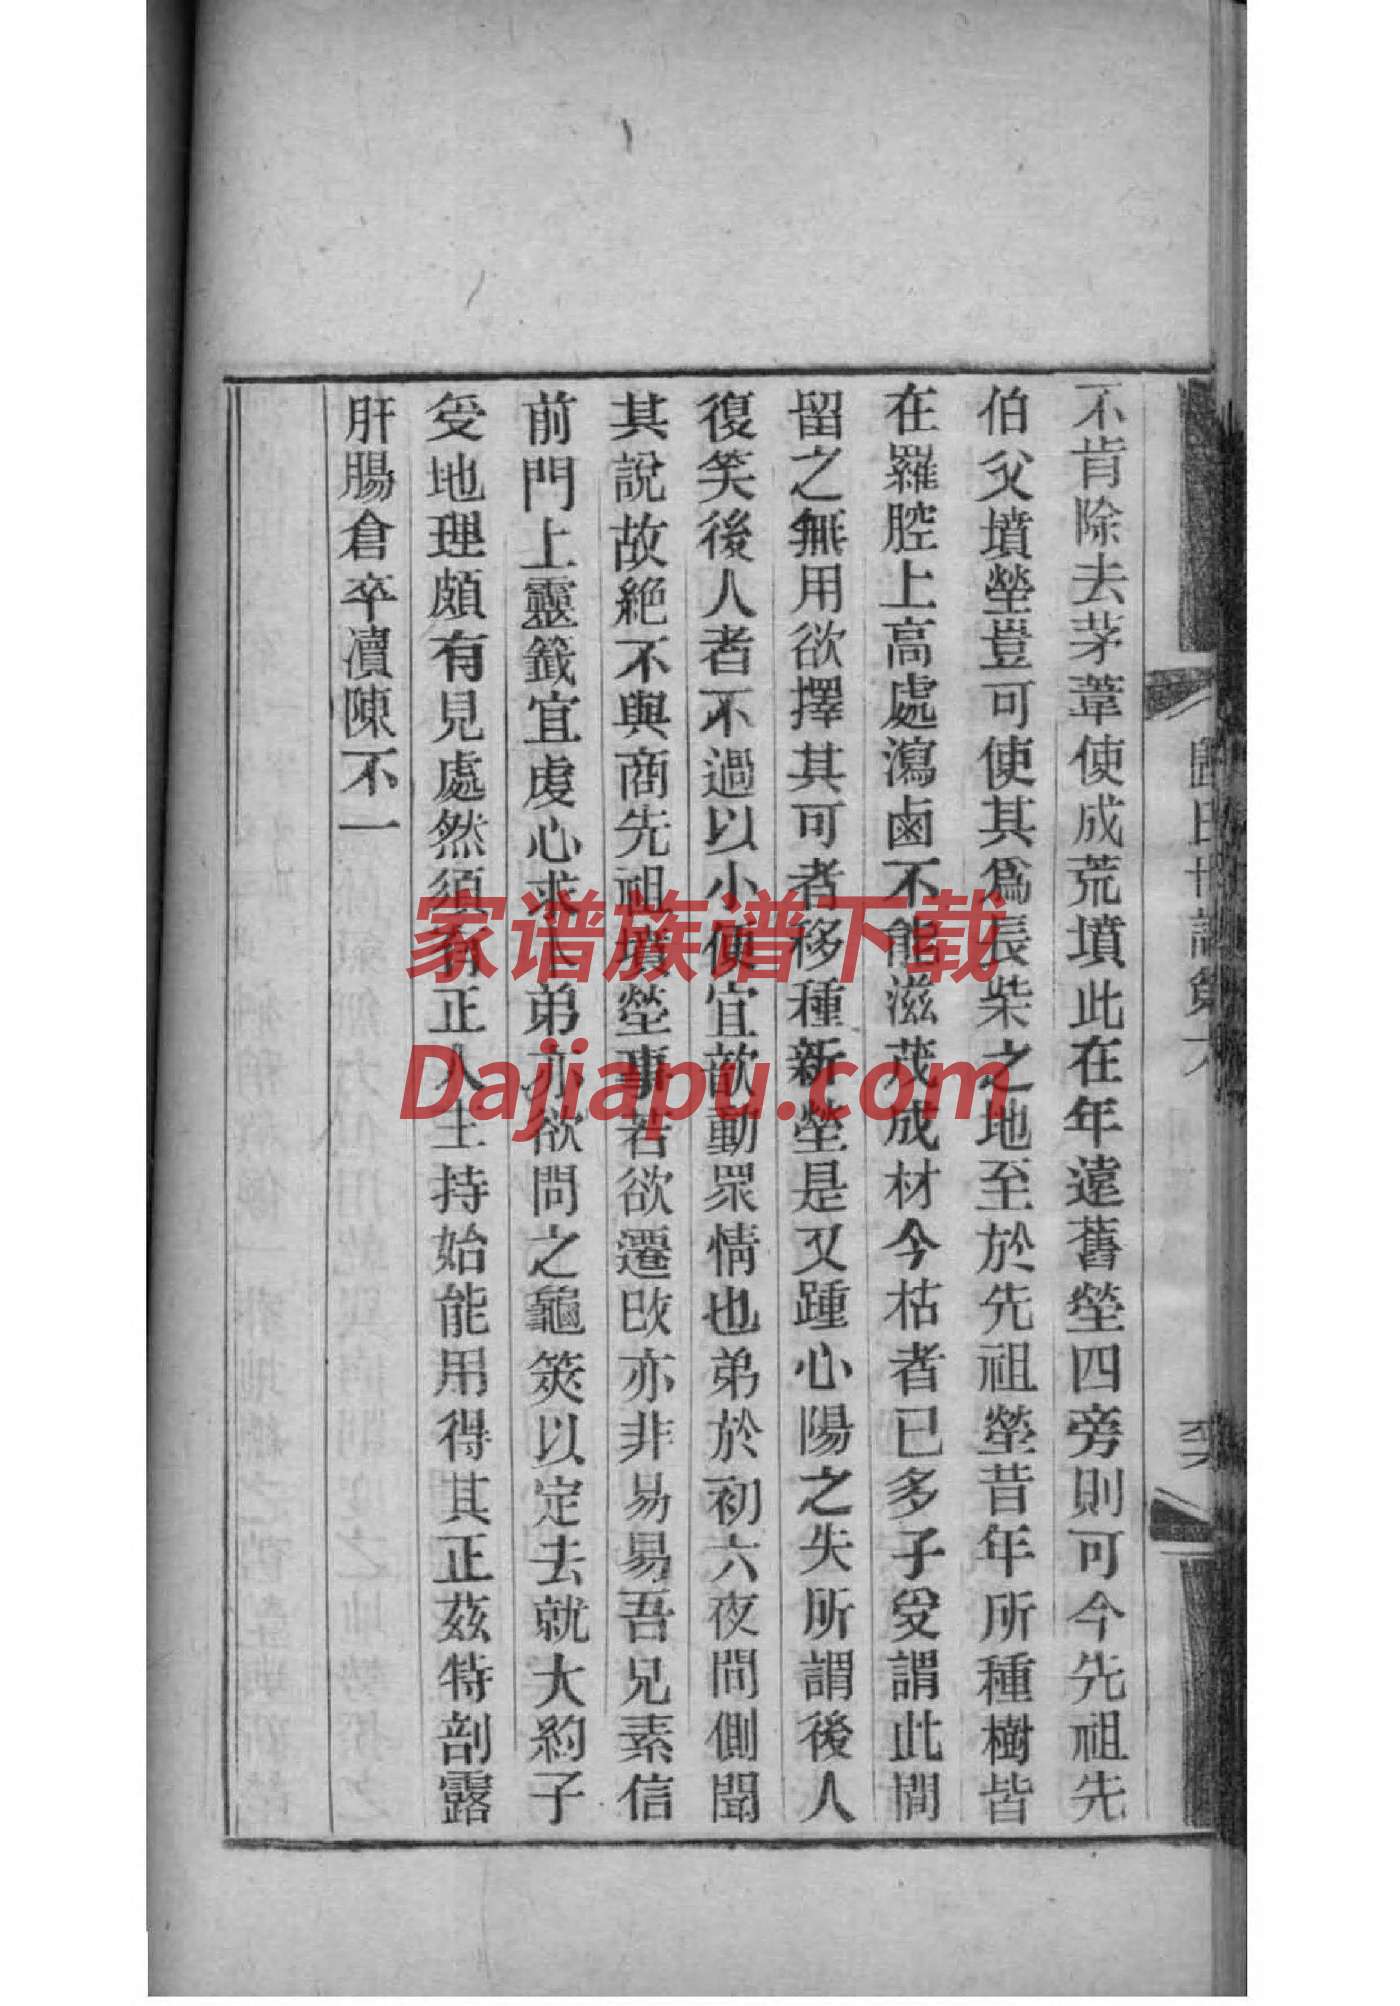 不肯除去茅葦使成荒墳此在年遠舊塋四旁則可今先祖先
伯父墳塋豈可使其爲長柴之地至於先祖塋昔年所種樹皆
在羅腔上高處瀉鹵不能滋茂成材今枯者已多子受謂此間
留之無用欲擇其可者移種新塋是又踵心陽之失所謂後人
復笑後人者不過以小便宜歆動眾情也弟於初六夜間側聞
其說故絶不與商先祖墳塋事若欲遷改亦非易易吾兄素信
前門上靈籤宜虔心求上弟亦欲問之龜筴以定去就大約子
受地理頗有見處然須有正人主持始能用得其正茲特剖露
肝腸倉卒瀆陳不一
家谱族谱下载
Dajiapu.com